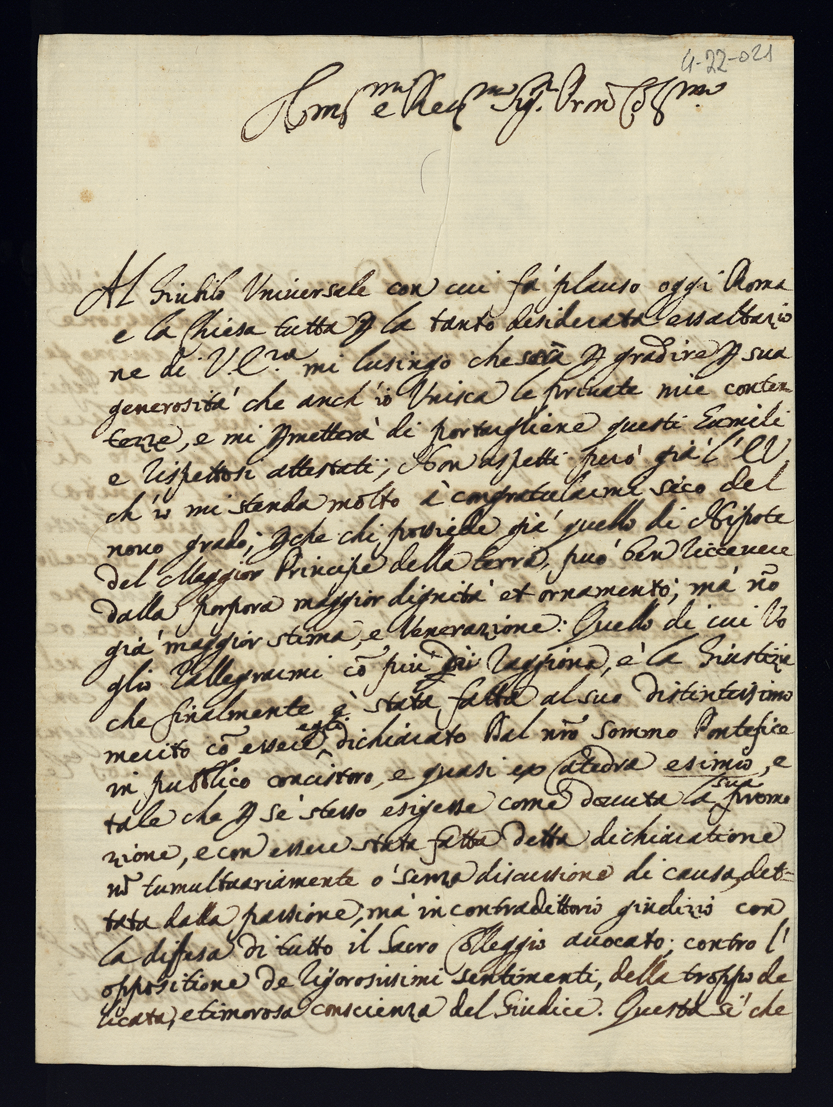 4-22-021
Em.mo e Rev.mo Sig.r Pron Col.mo
Al Giubilo Vniuersale con cui fà plauso oggi Roma
e la Chiesa tutta p la tanto desiderata essaltazio
ne di V E.za mi lusingo che serà p gradire p sua
generosità che anch'io Vnisca le priuate mie conten-
tezze, e mi pmetterà di portugliene questi Eumili
e Rispettosi attestati; Non aspetti però già l'EV
ch'io mi stenda molto à congratularmi seco del
nouo grado; pche chi possiede già quello di Nipote
del Maggior Principe della terra, può ben riceuere
dalla porpora maggior dignità et ornamento; mà nõ
già maggior stima, e Venerazione: Quello di cui Vo
glio rallegrarmi cõ più di raggione, è la Giustizia
che finalmente è stata fatta al suo distintissimo
merito cõ essere egli dichiarato Dal nr̃o Sommo Pontefice
in publico concistoro, e quasi ex Catedra esimio, e
tale che p sè stesso esigesse come douuta la sua promo
zione, e con essere stata fatta detta dichiaratione
nõ tumultuariamente ò senza discussione di causa, det-
tata dalla passione, mà in contradittorio giudizio con
la difesa di tutto il Sacro Colleggio auocato; contro l'
oppositione de rigorosissimi sentimenti, della troppo de
licata, e timorosa conscienza del Giudice. Questa sì che